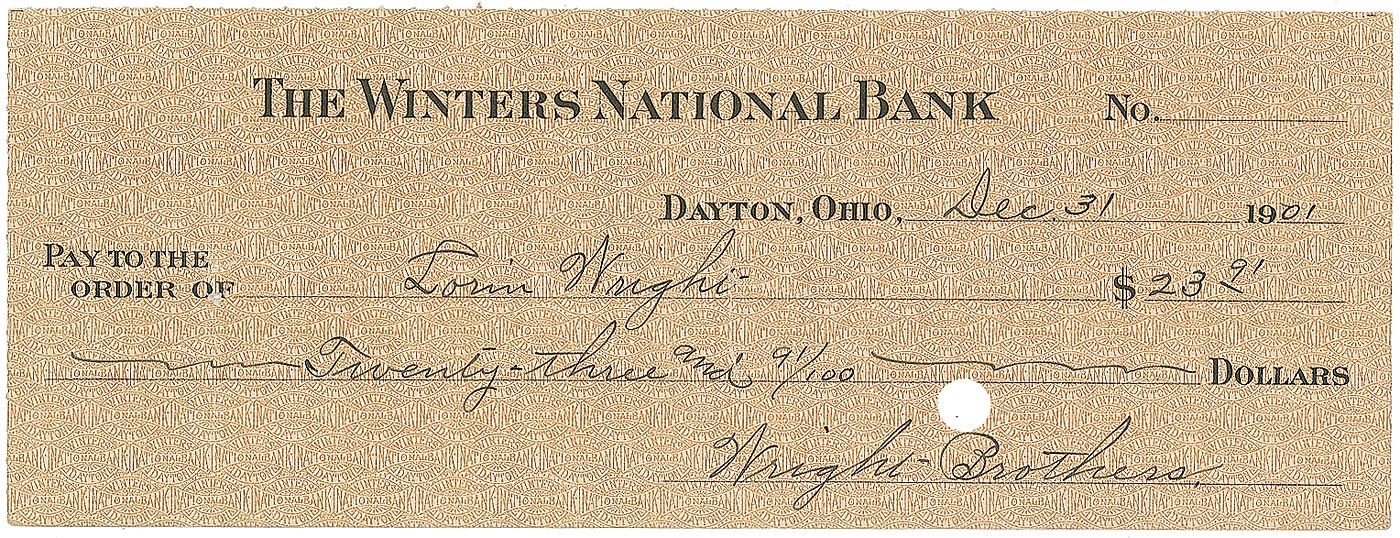 THE WINTERS NATIONAL BANK No.
DAYTON, OHIO, Dec. 31 1901
PAY TO THE
ORDER OF Lorin Wright $ 23 91
Twenty-three and 91/100 DOLLARS
Wright Brothers.